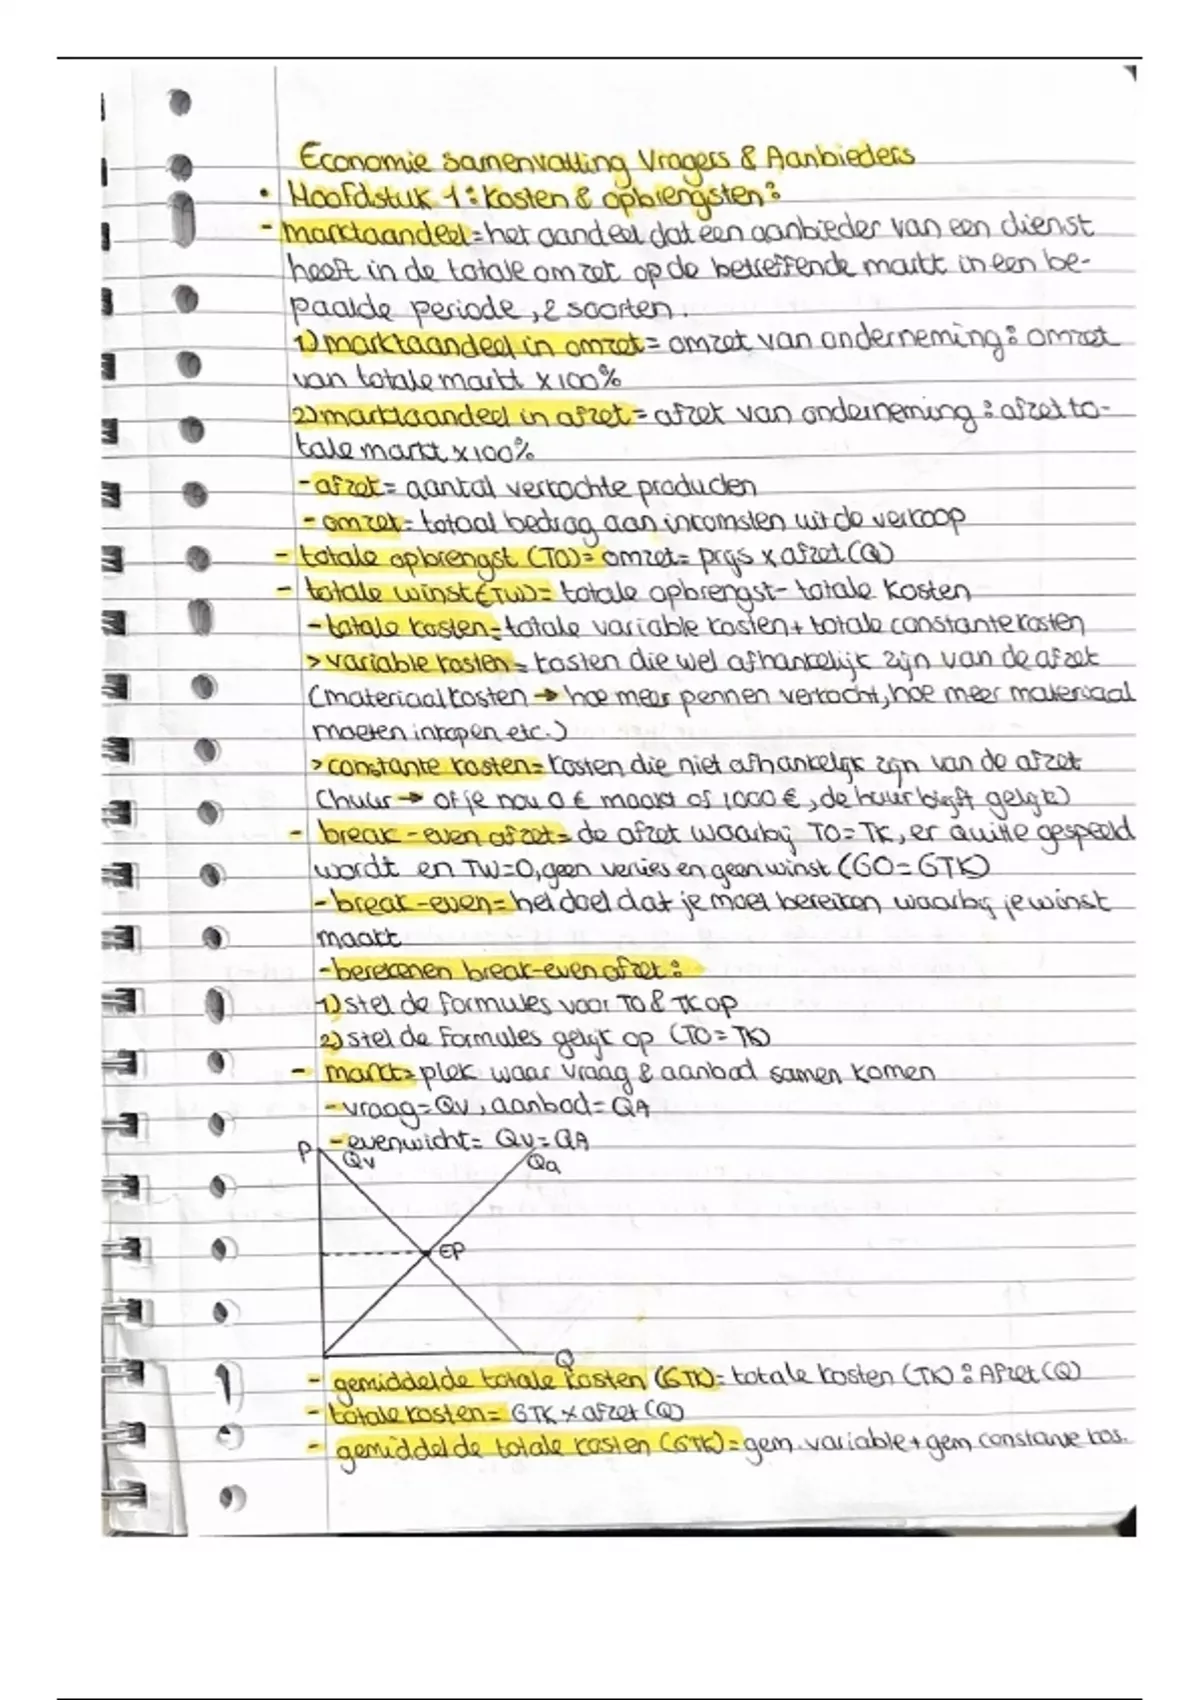 Economie samenvatting Vragers & Aanbieders
• Hoofdstuk 1: Kosten & opbrengsten:
- marktaandeel = het aandeel dat een aanbieder van een dienst
heeft in de totale omzet op de betreffende markt in een be-
paalde periode, 2 soorten.
1) marktaandeel in omzet = omzet van onderneming : omzet
van totale markt x 100%
2) marktaandeel in afzet = afzet van onderneming : afzet to-
tale markt x 100%
- afzet = aantal verkochte producten
- omzet = totaal bedrag aan inkomsten uit de verkoop
- totale opbrengst (TO) = omzet = prijs x afzet (Q)
- totale winst (TW) = totale opbrengst - totale kosten
- totale kosten = totale variable kosten + totale constante kosten
> variable kosten = kosten die wel afhankelijk zijn van de afzet
(materiaalkosten → hoe meer pennen verkocht, hoe meer materiaal
moeten inkopen etc.)
> constante kosten = kosten die niet afhankelijk zijn van de afzet
(huur → of je nou 0 € maakt of 1000 €, de huur blijft gelijk)
- break-even afzet = de afzet waarbij TO = TK, er quitte gespeeld
wordt en TW = 0, geen verlies en geen winst (GO = GTK)
- break-even = het doel dat je moet bereiken waarbij je winst
maakt
- berekenen break-even afzet:
1) stel de formules voor TO & TK op
2) stel de formules gelijk op (TO = TK)
- markt = plek waar vraag & aanbod samen komen
- vraag = Qv, aanbod = QA
- evenwicht = Qv = QA
P Qv Qa
EP
Q
- gemiddelde totale kosten (GTK) = totale kosten (TK) : Afzet (Q)
- totale kosten = GTK x afzet (Q)
- gemiddelde totale kosten (GTK) = gem. variable + gem constante kos.